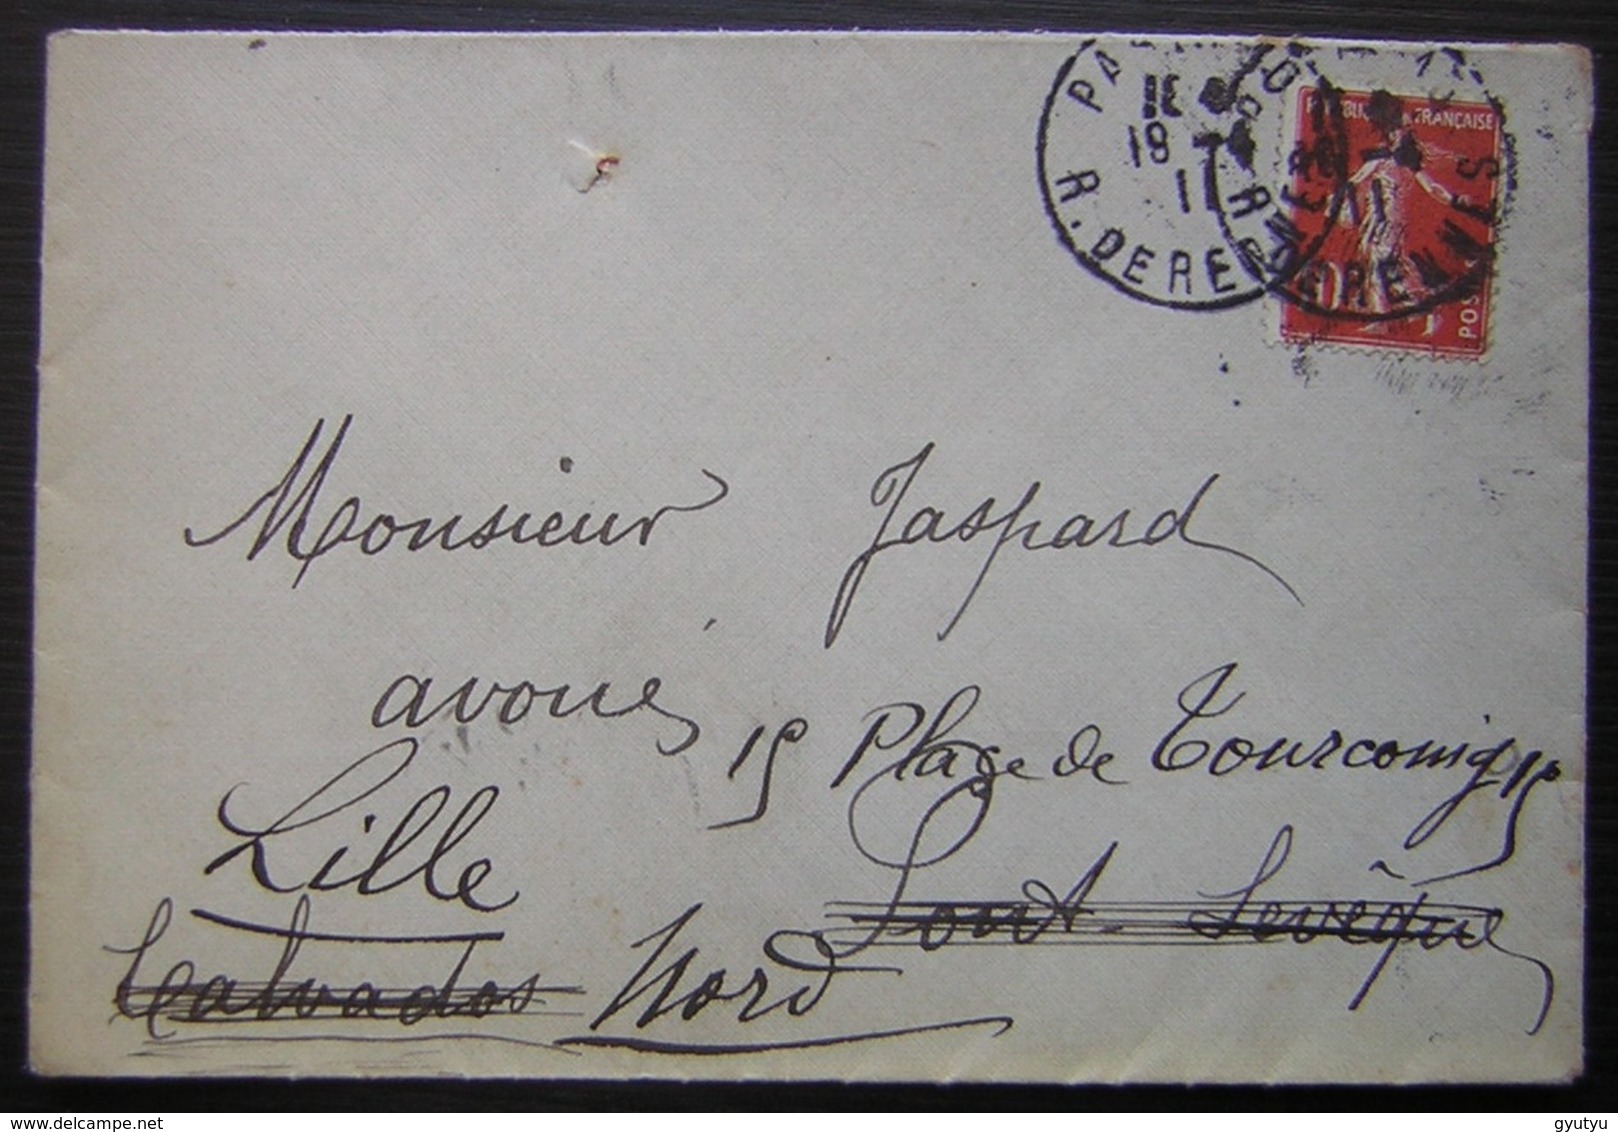 R. DE RENNES
18
11
R. DE RENNES
11
RÉPUBLIQUE FRANÇAISE
10
POS
Monsieur Jaspard
avoué
15 Place de Tourcoing 15
Lille
Pont-Levêque
Calvados Nord
www.delcampe.net
gyutyu